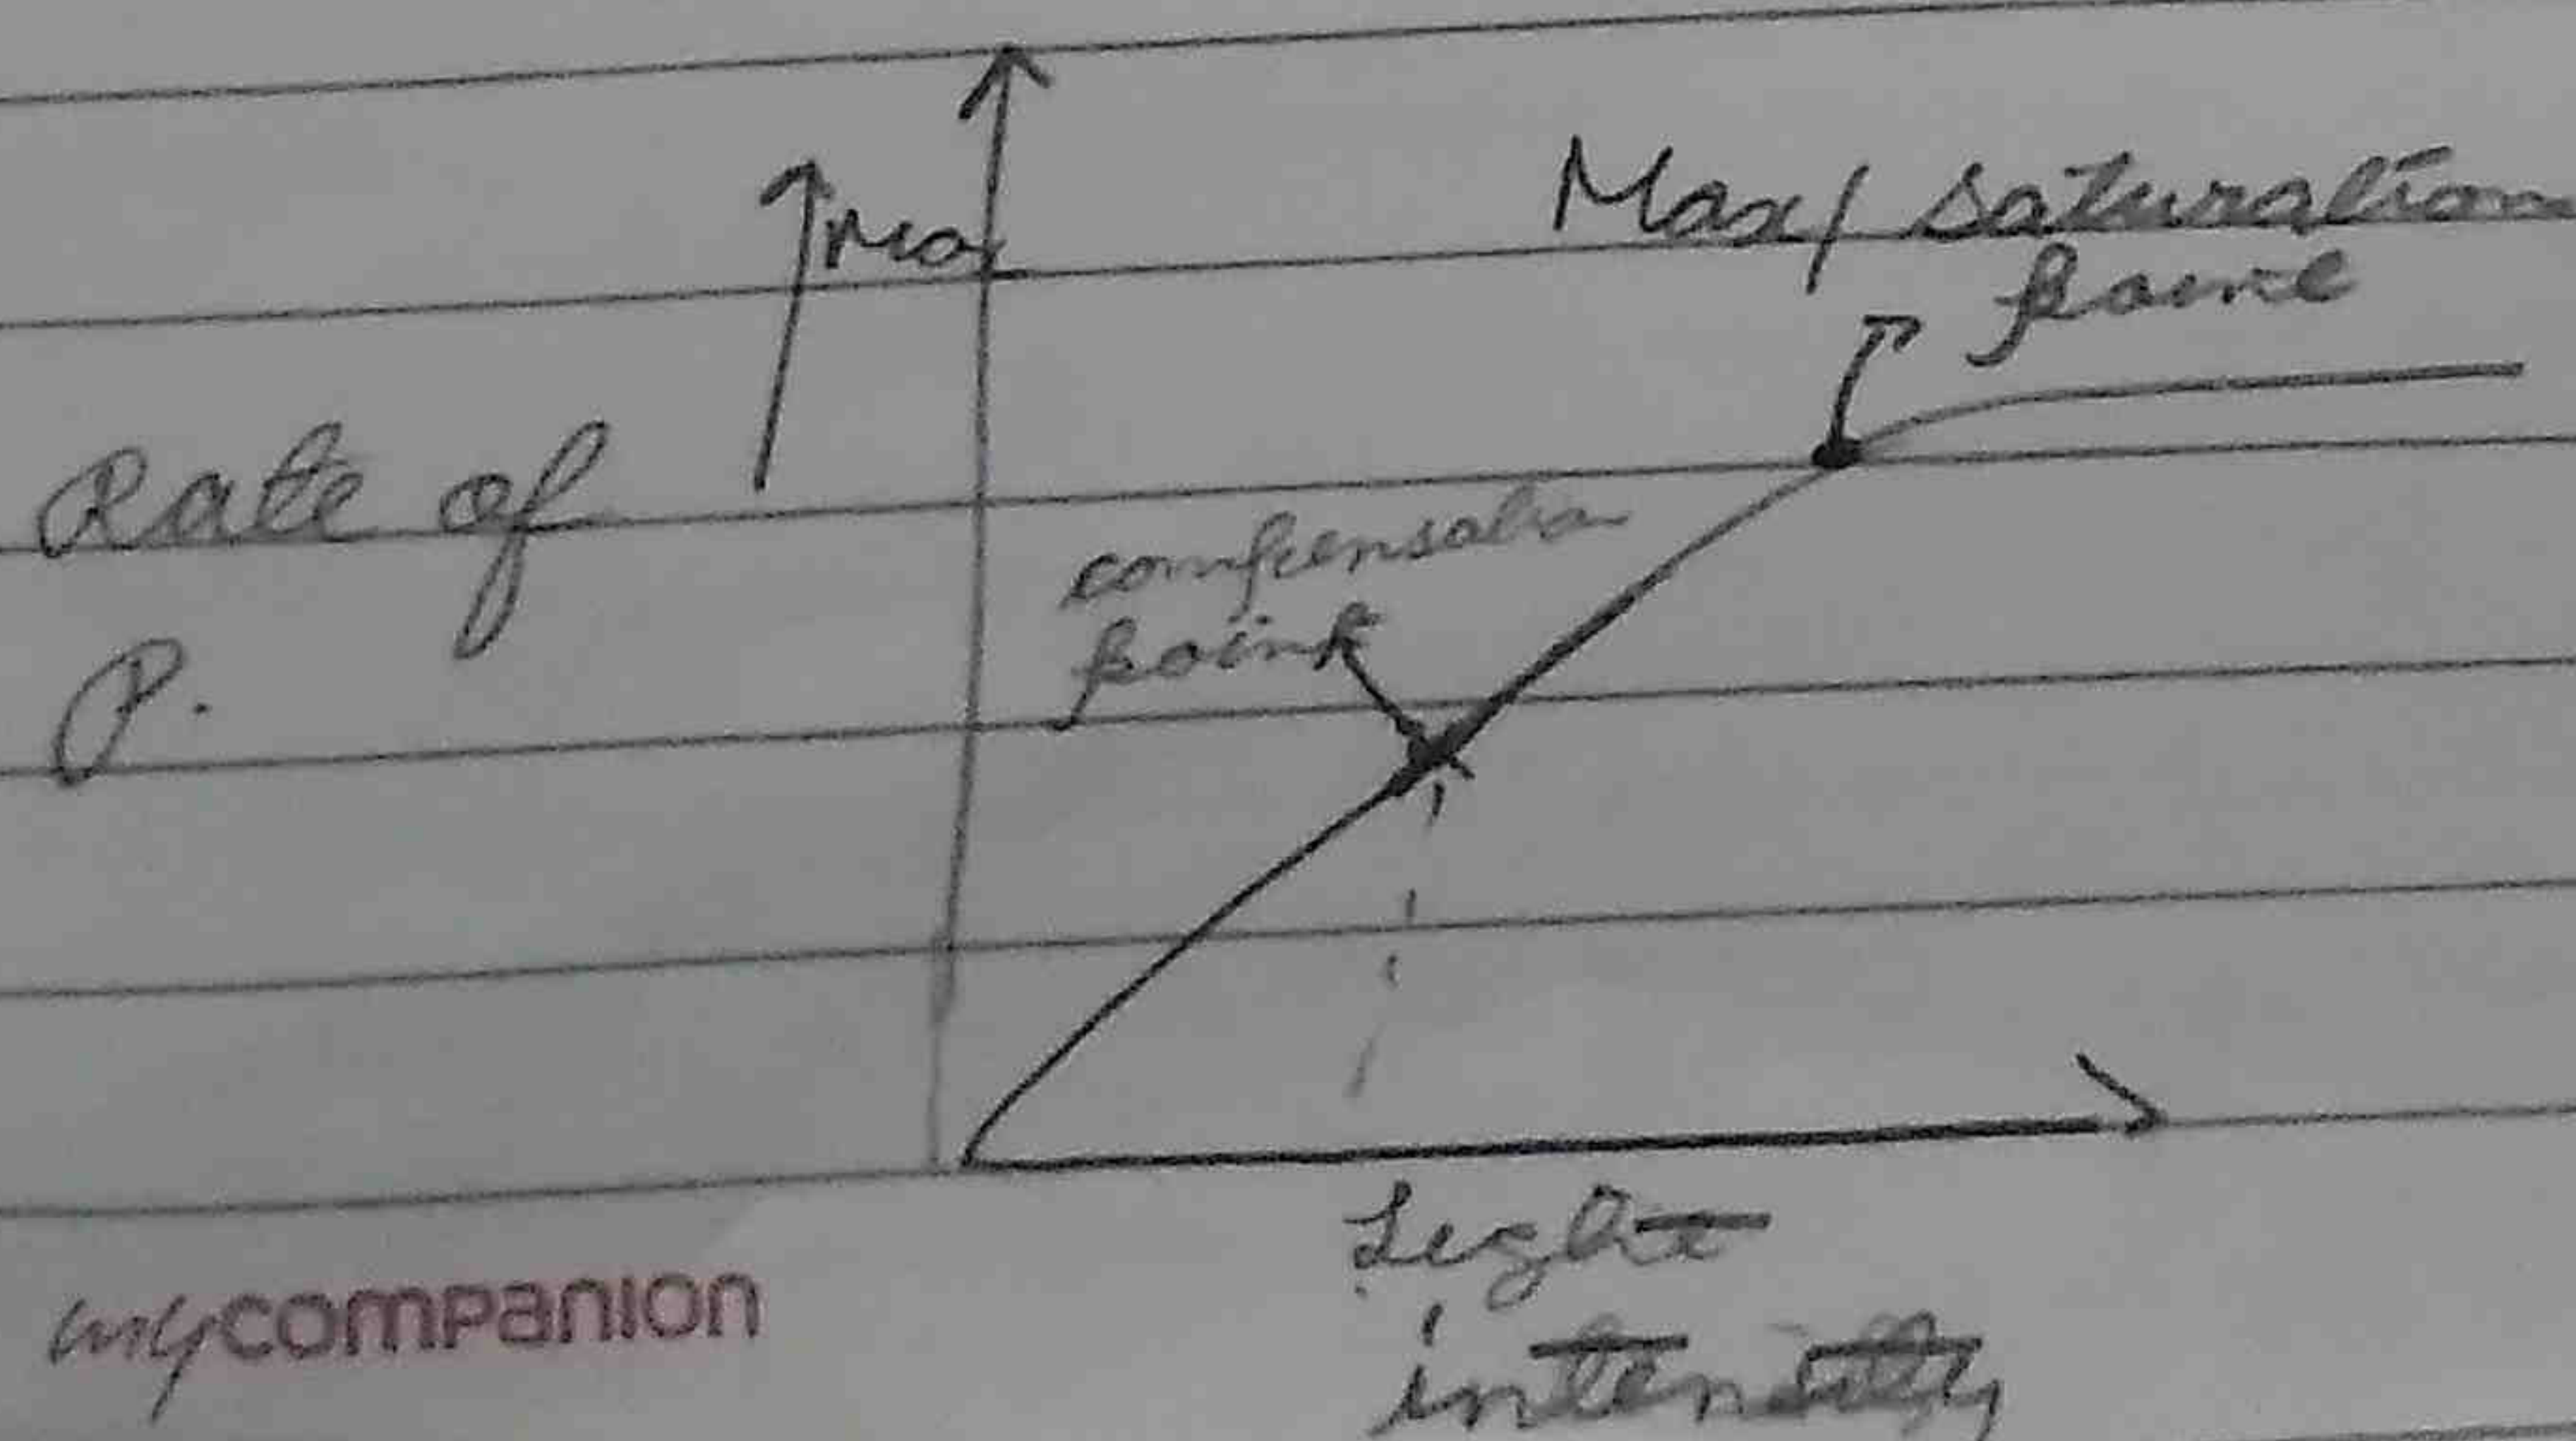 Max/ saturation
point
Rate of
P.
compensatio
point
Light
intensity
mycompanion